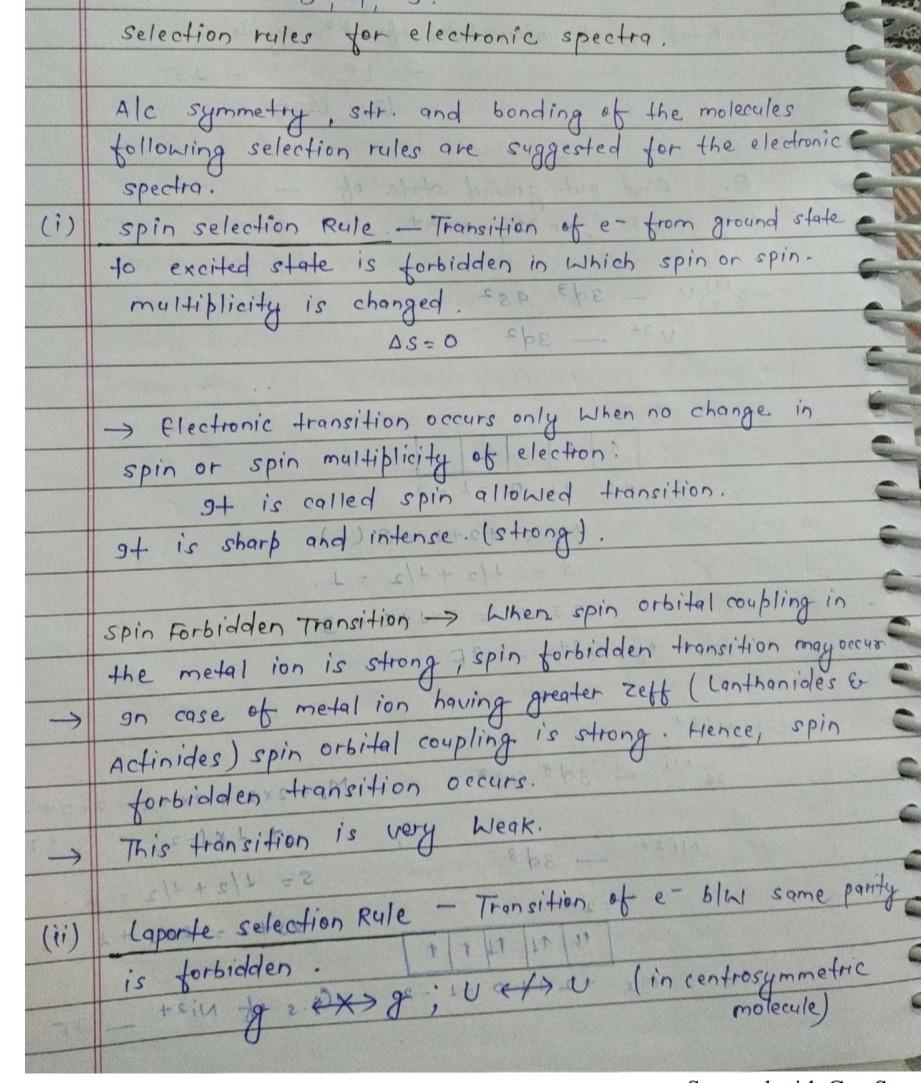 selection rules for electronic spectra.
A/c symmetry, str. and bonding of the molecules
following selection rules are suggested for the electronic
spectra.
(i) spin selection Rule – Transition of e- from ground state
to excited state is forbidden in which spin or spin-
multiplicity is changed.
ΔS = 0
→ Electronic transition occurs only when no change in
spin or spin multiplicity of electron.
It is called spin allowed transition.
It is sharp and intense. (strong).
spin Forbidden Transition → When spin orbital coupling in
the metal ion is strong, spin forbidden transition may occur
→ In case of metal ion having greater zeff (Lanthanides &
Actinides) spin orbital coupling is strong. Hence, spin
forbidden transition occurs.
→ This transition is very weak.
(ii) Laporte selection Rule – Transition of e- b/w same parity
is forbidden.
g ↮ g ; U ↮ U (in centrosymmetric
molecule)